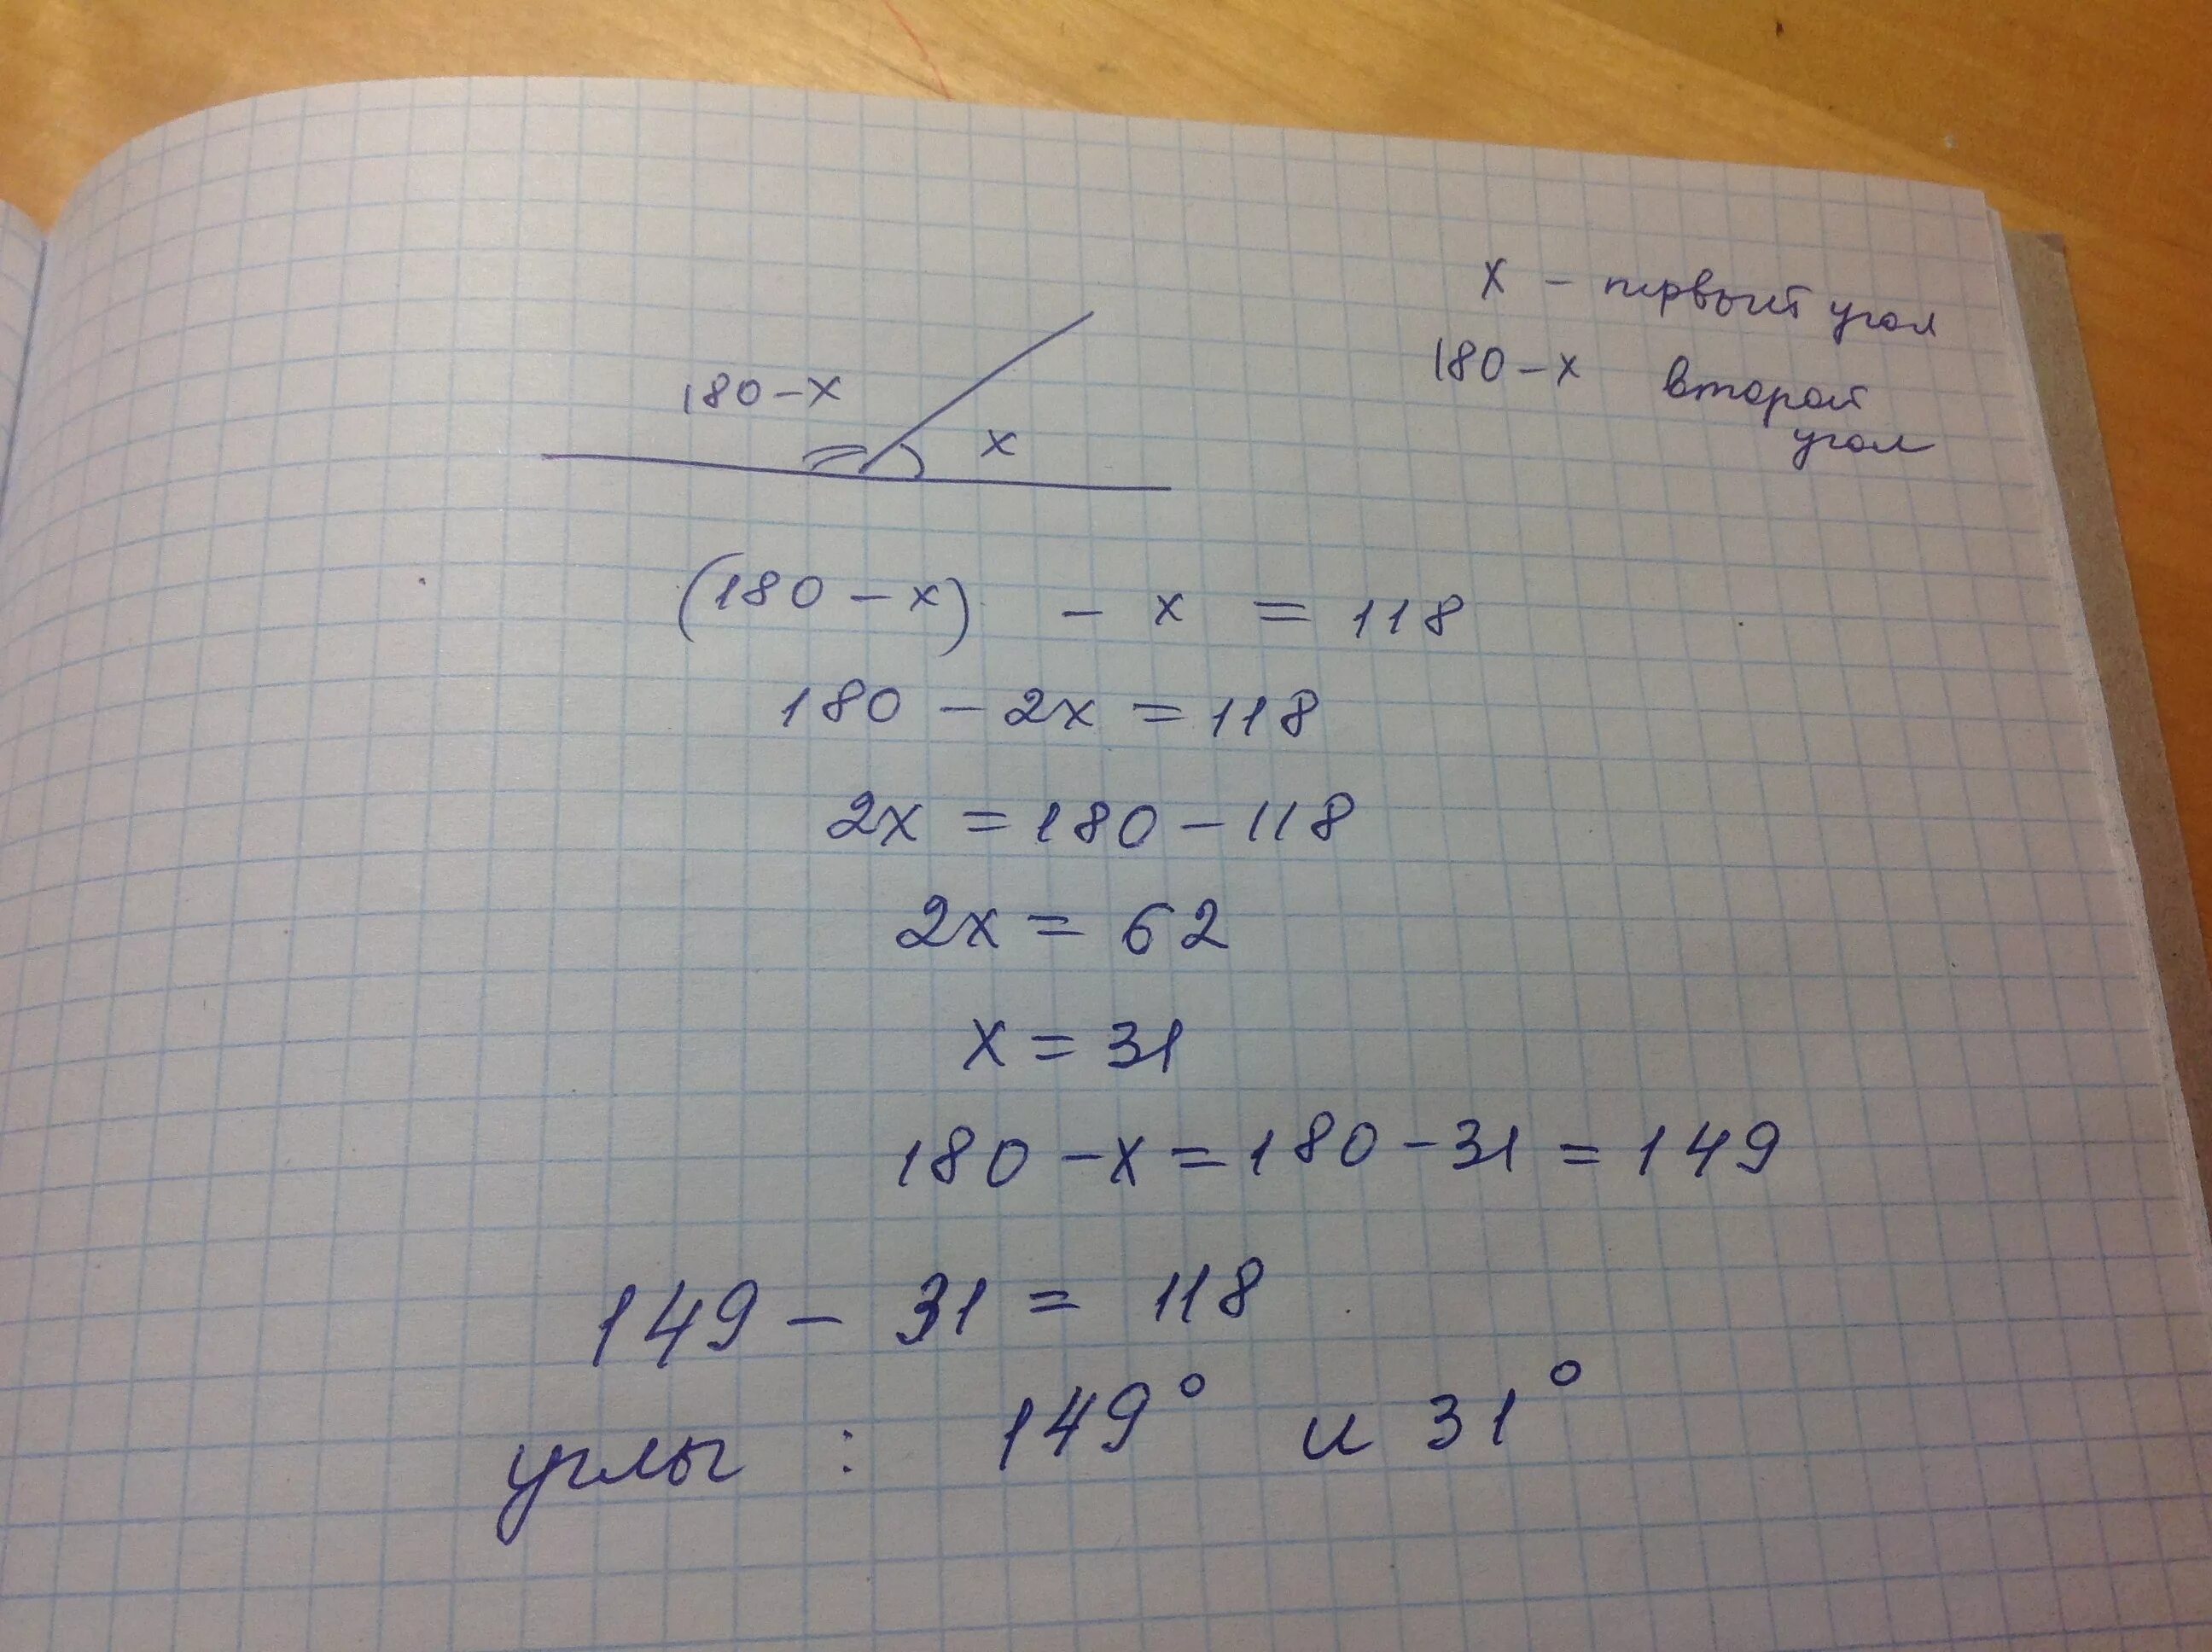 x - первый угол
180-x второй
угол
180-x
x
(180 - x) - x = 118
180 - 2x = 118
2x = 180 - 118
2x = 62
x = 31
180 - x = 180 - 31 = 149
149 - 31 = 118
углы : 149° и 31°